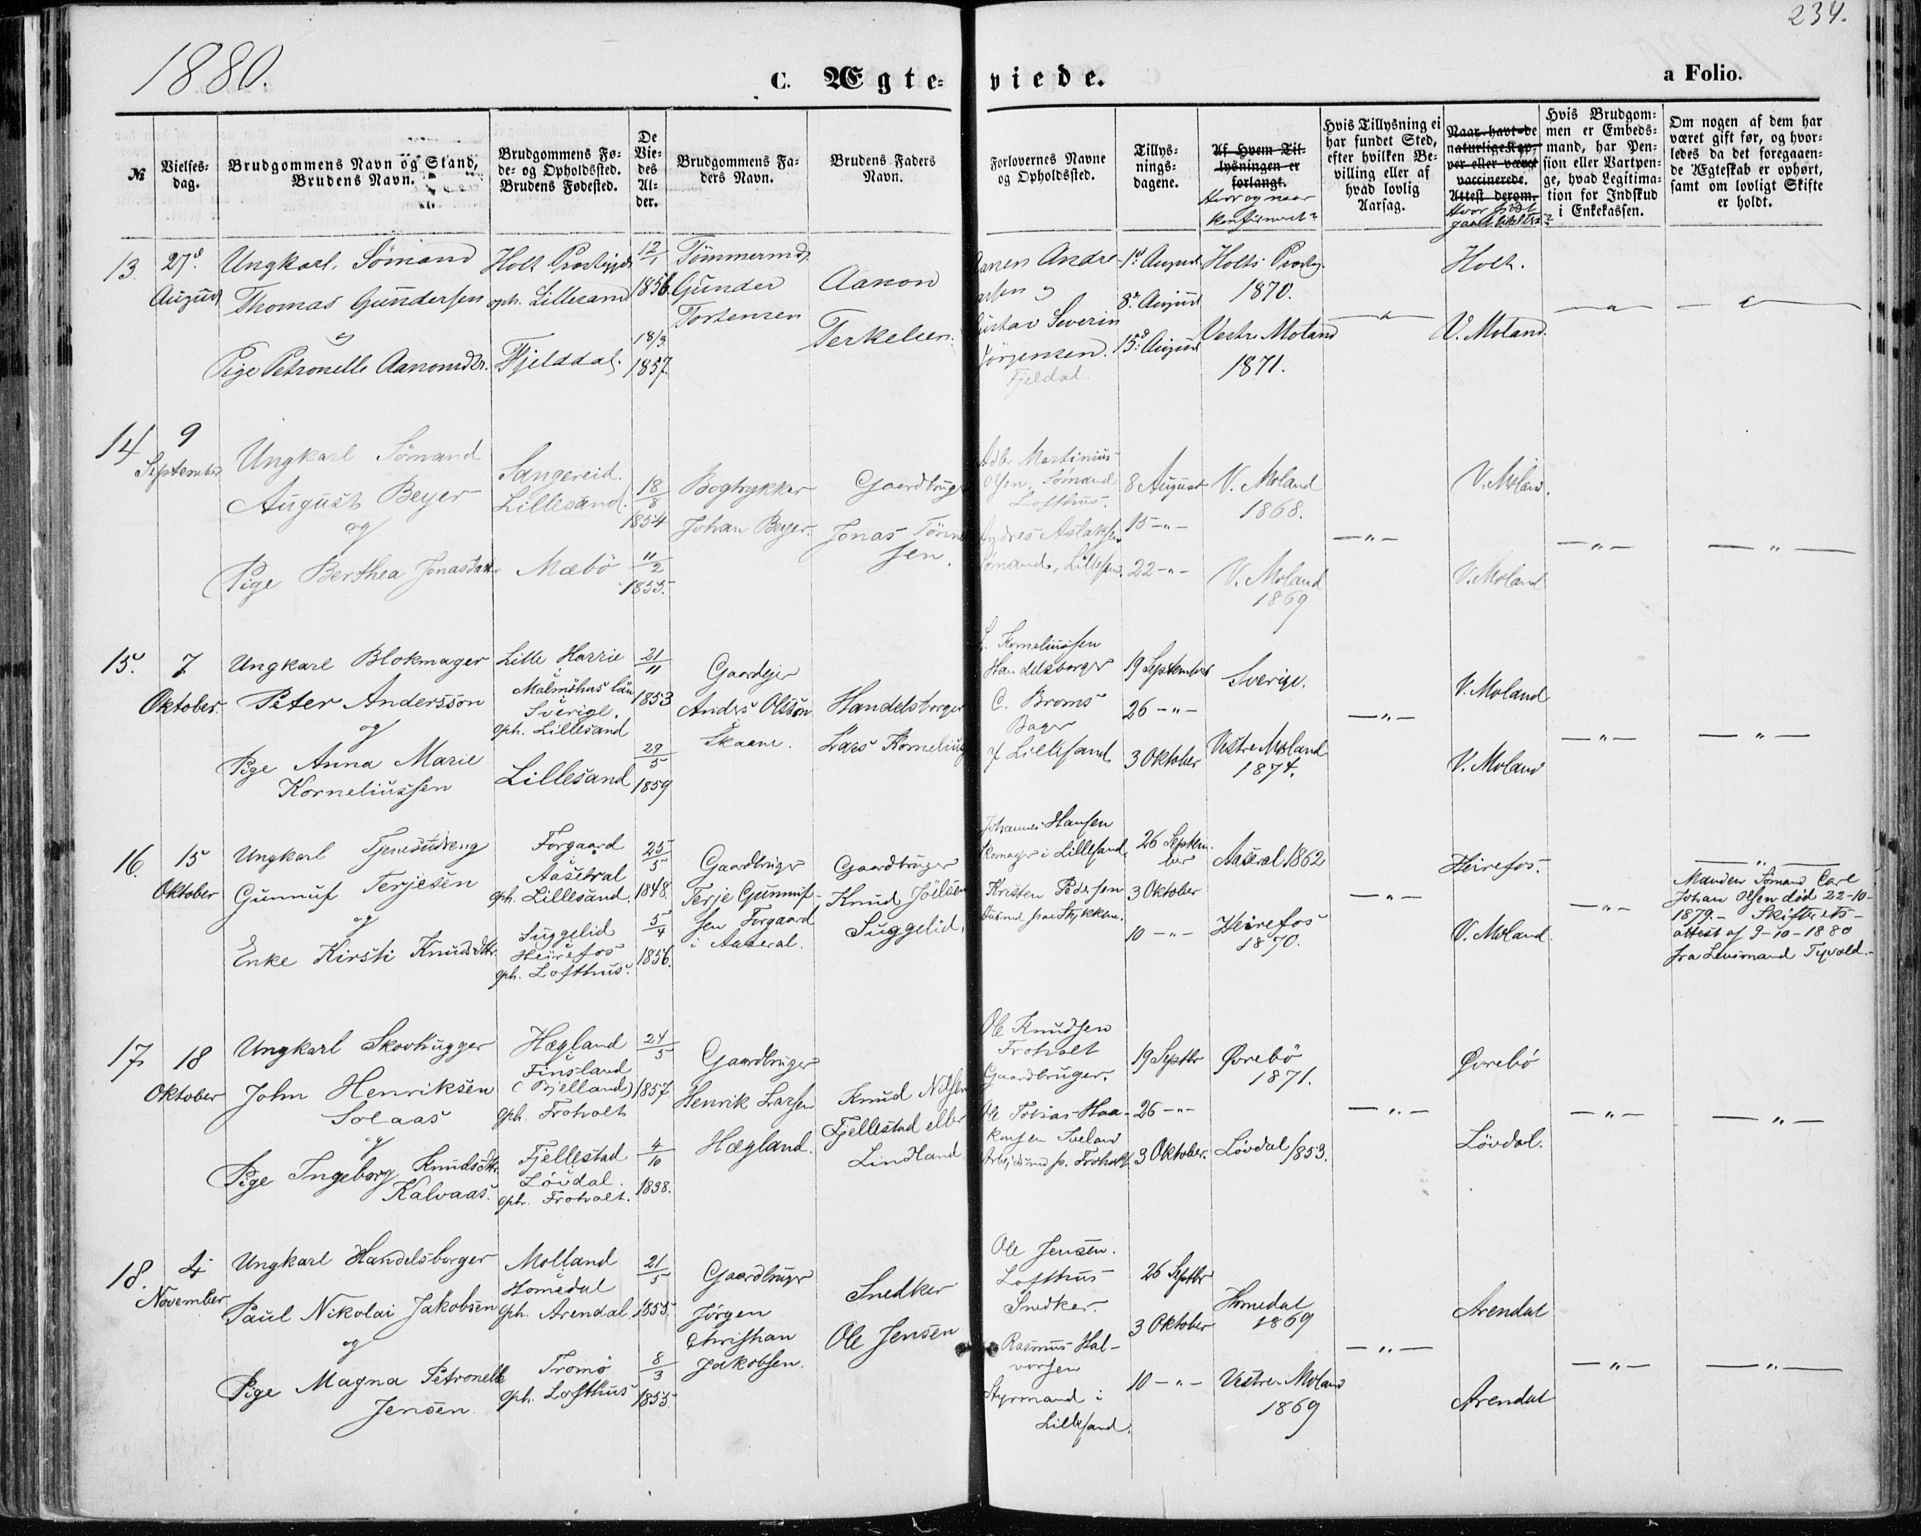 1880.
C. Ægte-
viede.
a Folio.
234.
№
Vielses-
dag.
Brudgommens Navn og Stand,
Brudens Navn.
Brudgommens Fø-
de- og Opholdssted.
Brudens Fødested.
De
Vie-
des
Al-
der.
Brudgommens Fa-
ders Navn.
Brudens Faders
Navn.
Forlovernes Navne
og Opholdssted.
Tillys-
nings-
dagene.
Af Hvem Til-
lysningen er
forlangt.
Hvor og naar
Konfirmeret?
Hvis Tillysning ei
har fundet Sted,
efter hvilken Be-
villing eller af
hvad lovlig
Aarsag.
Naar havt de
naturlige Kop-
per eller været
vaccinerede.
Attest derom.
Hvor sidst
Hvis Brudgom-
men er Embeds-
mand, har Pen-
sion eller Vartpen-
ge, hvad Legitima-
tion for Indskud
i Enkekassen.
Om nogen af dem har
været gift før, og hvor-
ledes da det foregaaen-
de Ægteskab er ophørt,
samt om lovligt Skifte
er holdt.
13.
27d
August
Ungkarl, Sømand
Thomas Gundersen
og
Pige Petronelle Aanonsdtr.
Holt Præstegjd
oph. Lillesand
Fjelddal.
12/1
1856.
18/3
1857.
Tömmermd.
Gunder
Torstensen
Aanon
Terkelsen.
Aanen Andre
asen og
Gustav Severin
Jörgensen.
Fjeldal.
1d August
8d August
15d August
Holts Præstg.
1870.
Vestre Moland
1871.
Holt.
V. Moland.
14
9
September
Ungkarl Sømand
August Beyer
og
Pige Berthea Jonasdatr
Sangereid.
Lillesand.
Mæbö
18/8
1854
11/2
1855.
Bogtrykker
Johan Beyer.
Gaardbrug
Jonas Tönne
sen.
Martinius
Olsen, Sømand
Lofthus.
Andres Aslaksen
Sømand, Lillesand.
8 August
15 -"-
22 -"-
V. Moland
1868.
V. Moland
1869
-"-
V. Moland.
V. Moland
-"-
-"-
15.
7
Oktober.
Ungkarl Blokmager
Peter Andersson
og
Pige Anna Marie
Korneliussen
Lille Harrie
Malmöhus Län
Sverige.
oph. Lillesand
Lillesand
21/11
1853
29/5
1859
Gaardejer
Anders Olsson
Skaane.
Handelsborger
Lars Kornelius
L. Korneliussen
Handelsborger
C. Broms
Bager
af Lillesand
19 September
26 -"-
3 Oktober
Sverige.
Vestre Moland
1874.
-"-
V. Moland
V. Moland
-"-
-"-
16.
15
Oktober
Ungkarl Tjenestdreng
Gunnuf Terjesen
og
Enke Kirsti Knudsdtr.
Forgaard
Aaseral
oph. Lillesand.
Suggelid
Heirefos
oph. Lofthus.
25/5
1848.
5/4
1856.
Gaardbruger
Terje Gunnuf-
sen Forgaard
i Aaseral.
Gaardbruger
Knud Joelsen
Suggelid.
Johannes Hansen
Skomager i Lillesand
Kristen Pedersen
Stykken.
26 Septem
ber
3 Oktober
10 -"-
Aaseral 1862
Heirefos
1870.
-"-
Heirefos.
V. Moland.
-"-
-"-
Manden Sømand Carl
Johan Olsen död 22-10-
1879.- Skifterets-
attest af 9-10-1880
fra Lensmand Tyvold.-
17.
18
Oktober
Ungkarl Skovhugger
John Henriksen
Solaas
og
Pige Ingeborg Knudsdtr.
Kalvaas.
Hægland
Finsland
(Bjelland)
oph. Froholt
Fjellestad
Lövdal.
oph. Froholt.
24/5
1857.
4/10
1838.
Gaardbruger
Henrik Larsen
Hægland.
Knud Nilsen
Fjellestad eller
Lindland
Ole Knudsen
Froholt
Gaardbruger.
Ole Tobias Haa-
konsen Sveland
Arbejdsmd p. Froholt.
19 Septbr
26 -"-
3 Oktober.
Øvrebö
1871.
Lövdal 1853.
-"-
Øvrebö
Lövdal.
-"-
-"-
18.
4
November
Ungkarl Handelsborger
Paul Nikolai Jakobsen
og
Pige Magna Petronelle
Jensen.
Molland
Homedal
oph. Arendal
Tromö
oph. Lofthus
21/5
1855.
8/3
1855.
Gaardbruger
Jörgen
Christian
Jakobsen.
Snedker
Ole Jensen
Ole Jensen.
Lofthus
Snedker.
Rasmus Hal-
vorsen
Styrmand i
Lillesand.
26 Septbr
3 Oktober
10 -"-
Homedal
1869
Vestre Moland
1869
-"-
Arendal
Arendal
-"-
-"-